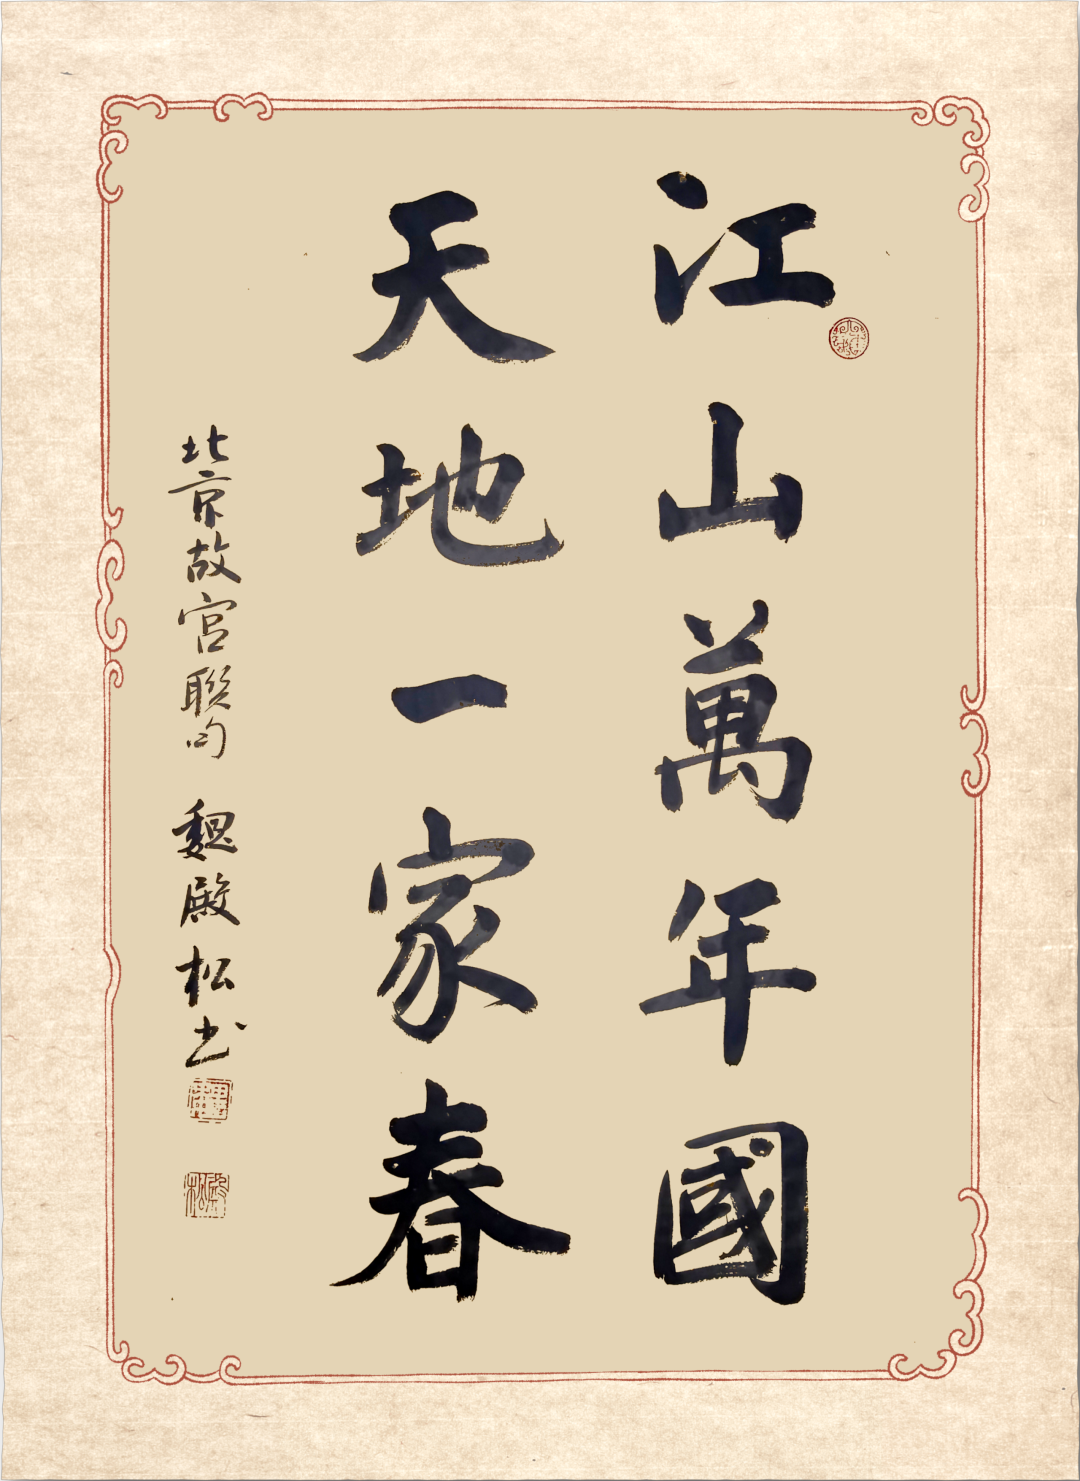 江山萬年國
天地一家春
北京故宮聯句 魏殿松书